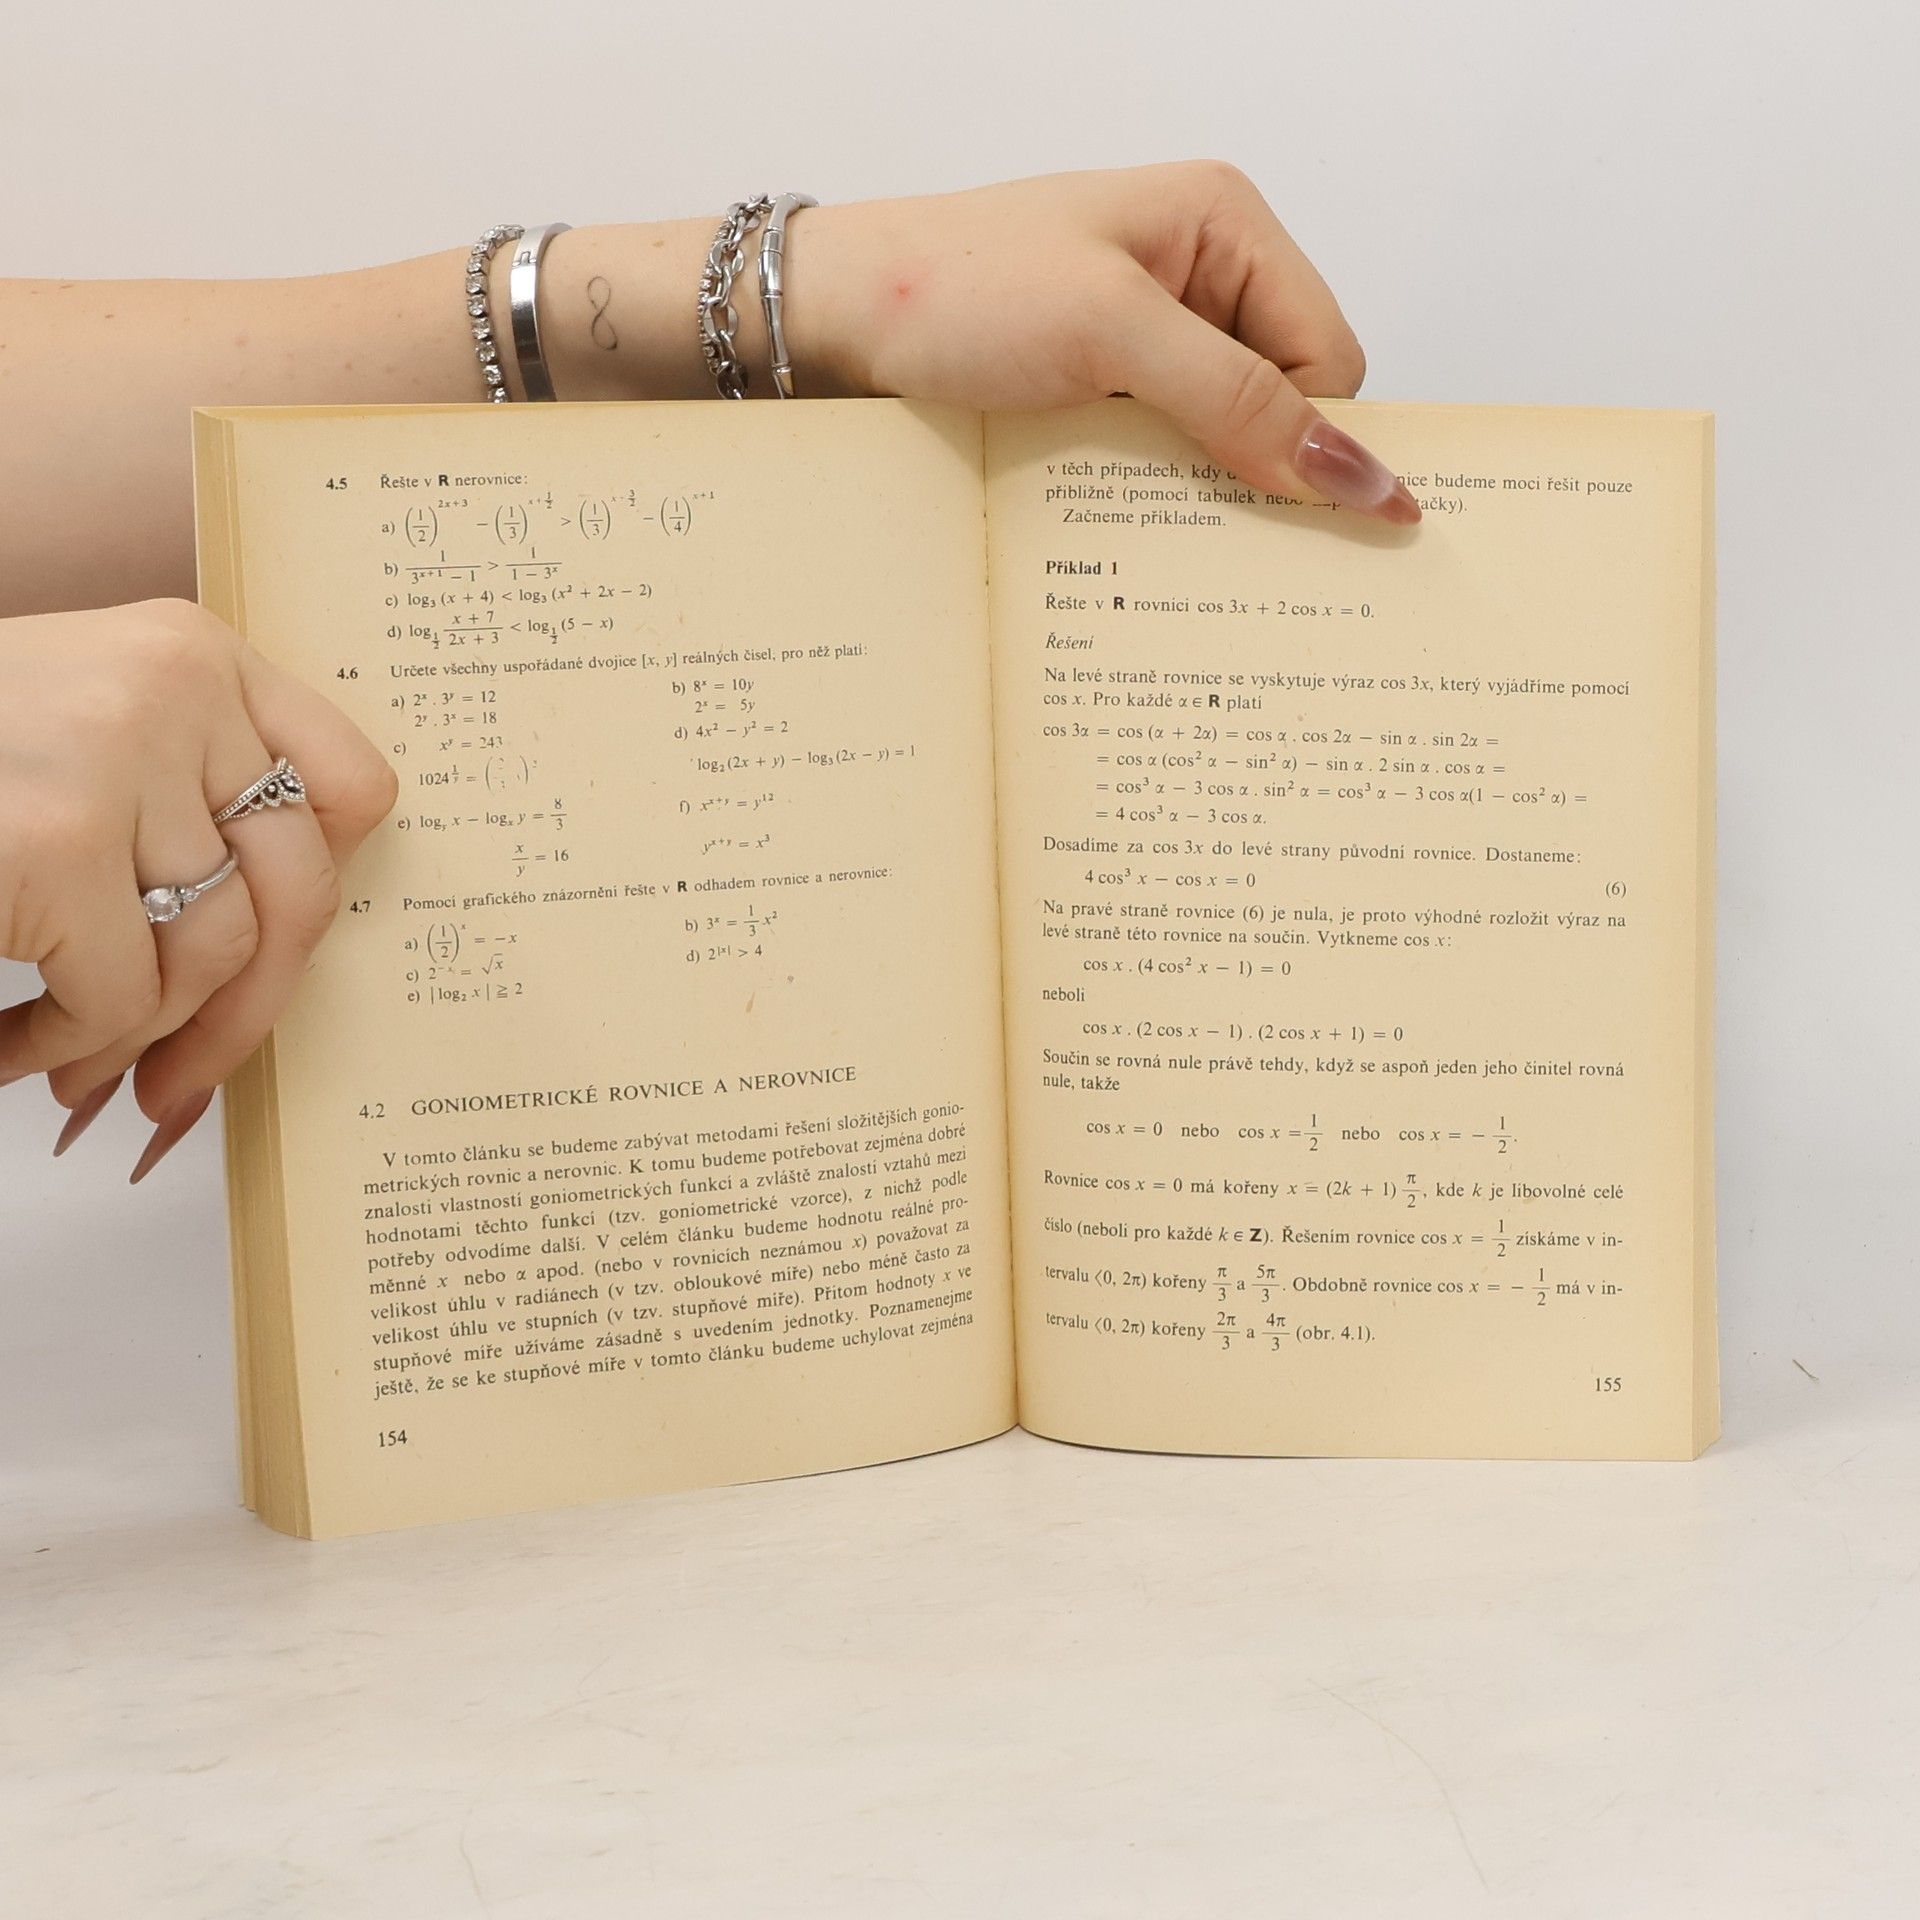 4.5 Řešte v R nerovnice:
a) (1/2)^(2x+3) − (1/3)^(x+1/2) > (1/3)^(x−3/2) − (1/4)^(x+1)
b) 1/(3^(x+1) − 1) > 1/(1 − 3^x)
c) log₃ (x + 4) < log₃ (x² + 2x − 2)
d) log_(1/2) (x + 7)/(2x + 3) < log_(1/2) (5 − x)
4.6 Určete všechny uspořádané dvojice [x, y] reálných čísel, pro něž platí:
a) 2^x . 3^y = 12
2^y . 3^x = 18
b) 8^x = 10y
2^x = 5y
c) x^y = 243
1024^(1/y) =
d) 4x² − y² = 2
log₂ (2x + y) − log₃ (2x − y) = 1
e) log_y x − log_x y = 8/3
x/y = 16
f) x^(x+y) = y^12
y^(x+y) = x³
4.7 Pomocí grafického znázornění řešte v R odhadem rovnice a nerovnice:
a) (1/2)^x = −x
b) 3^x = 1/3 x²
c) 2^(−x) = √x
d) 2^|x| > 4
e) |log₂ x| ≧ 2
4.2 GONIOMETRICKÉ ROVNICE A NEROVNICE
V tomto článku se budeme zabývat metodami řešení složitějších gonio-
metrických rovnic a nerovnic. K tomu budeme potřebovat zejména dobré
znalosti vlastností goniometrických funkcí a zvláště znalosti vztahů mezi
hodnotami těchto funkcí (tzv. goniometrické vzorce), z nichž podle
potřeby odvodíme další. V celém článku budeme hodnotu reálné pro-
měnné x nebo α apod. (nebo v rovnicích neznámou x) považovat za
velikost úhlu v radiánech (v tzv. obloukové míře) nebo méně často za
velikost úhlu ve stupních (v tzv. stupňové míře). Přitom hodnoty x ve
stupňové míře užíváme zásadně s uvedením jednotky. Poznamenejme
ještě, že se ke stupňové míře v tomto článku budeme uchylovat zejména
154
v těch případech, kdy budeme moci řešit pouze
přibližně (pomocí tabulek nebo
Začneme příkladem.
Příklad 1
Řešte v R rovnici cos 3x + 2 cos x = 0.
Řešení
Na levé straně rovnice se vyskytuje výraz cos 3x, který vyjádříme pomocí
cos x. Pro každé α ∈ R platí
cos 3α = cos (α + 2α) = cos α . cos 2α − sin α . sin 2α =
= cos α (cos² α − sin² α) − sin α . 2 sin α . cos α =
= cos³ α − 3 cos α . sin² α = cos³ α − 3 cos α(1 − cos² α) =
= 4 cos³ α − 3 cos α.
Dosadíme za cos 3x do levé strany původní rovnice. Dostaneme:
4 cos³ x − cos x = 0 (6)
Na pravé straně rovnice (6) je nula, je proto výhodné rozložit výraz na
levé straně této rovnice na součin. Vytkneme cos x:
cos x . (4 cos² x − 1) = 0
neboli
cos x . (2 cos x − 1) . (2 cos x + 1) = 0
Součin se rovná nule právě tehdy, když se aspoň jeden jeho činitel rovná
nule, takže
cos x = 0 nebo cos x = 1/2 nebo cos x = − 1/2.
Rovnice cos x = 0 má kořeny x = (2k + 1) π/2, kde k je libovolné celé
číslo (neboli pro každé k ∈ Z). Řešením rovnice cos x = 1/2 získáme v in-
tervalu ⟨0, 2π) kořeny π/3 a 5π/3. Obdobně rovnice cos x = − 1/2 má v in-
tervalu ⟨0, 2π) kořeny 2π/3 a 4π/3 (obr. 4.1).
155